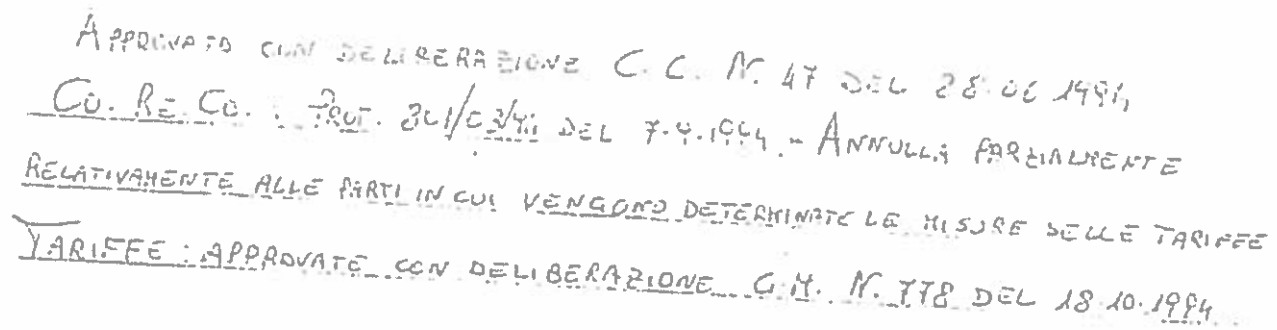 APPROVATO CON DELIBERAZIONE C.C. N. 47 DEL 28.06.1994
CO.RE.CO. : PROT. DEL 7.9.1994 - ANNULLA PARZIALMENTE
RELATIVAMENTE ALLE PARTI IN CUI VENGONO DETERMINATE LE MISURE DELLE TARIFFE
TARIFFE : APPROVATE CON DELIBERAZIONE G.M. N. 778 DEL 18.10.1994